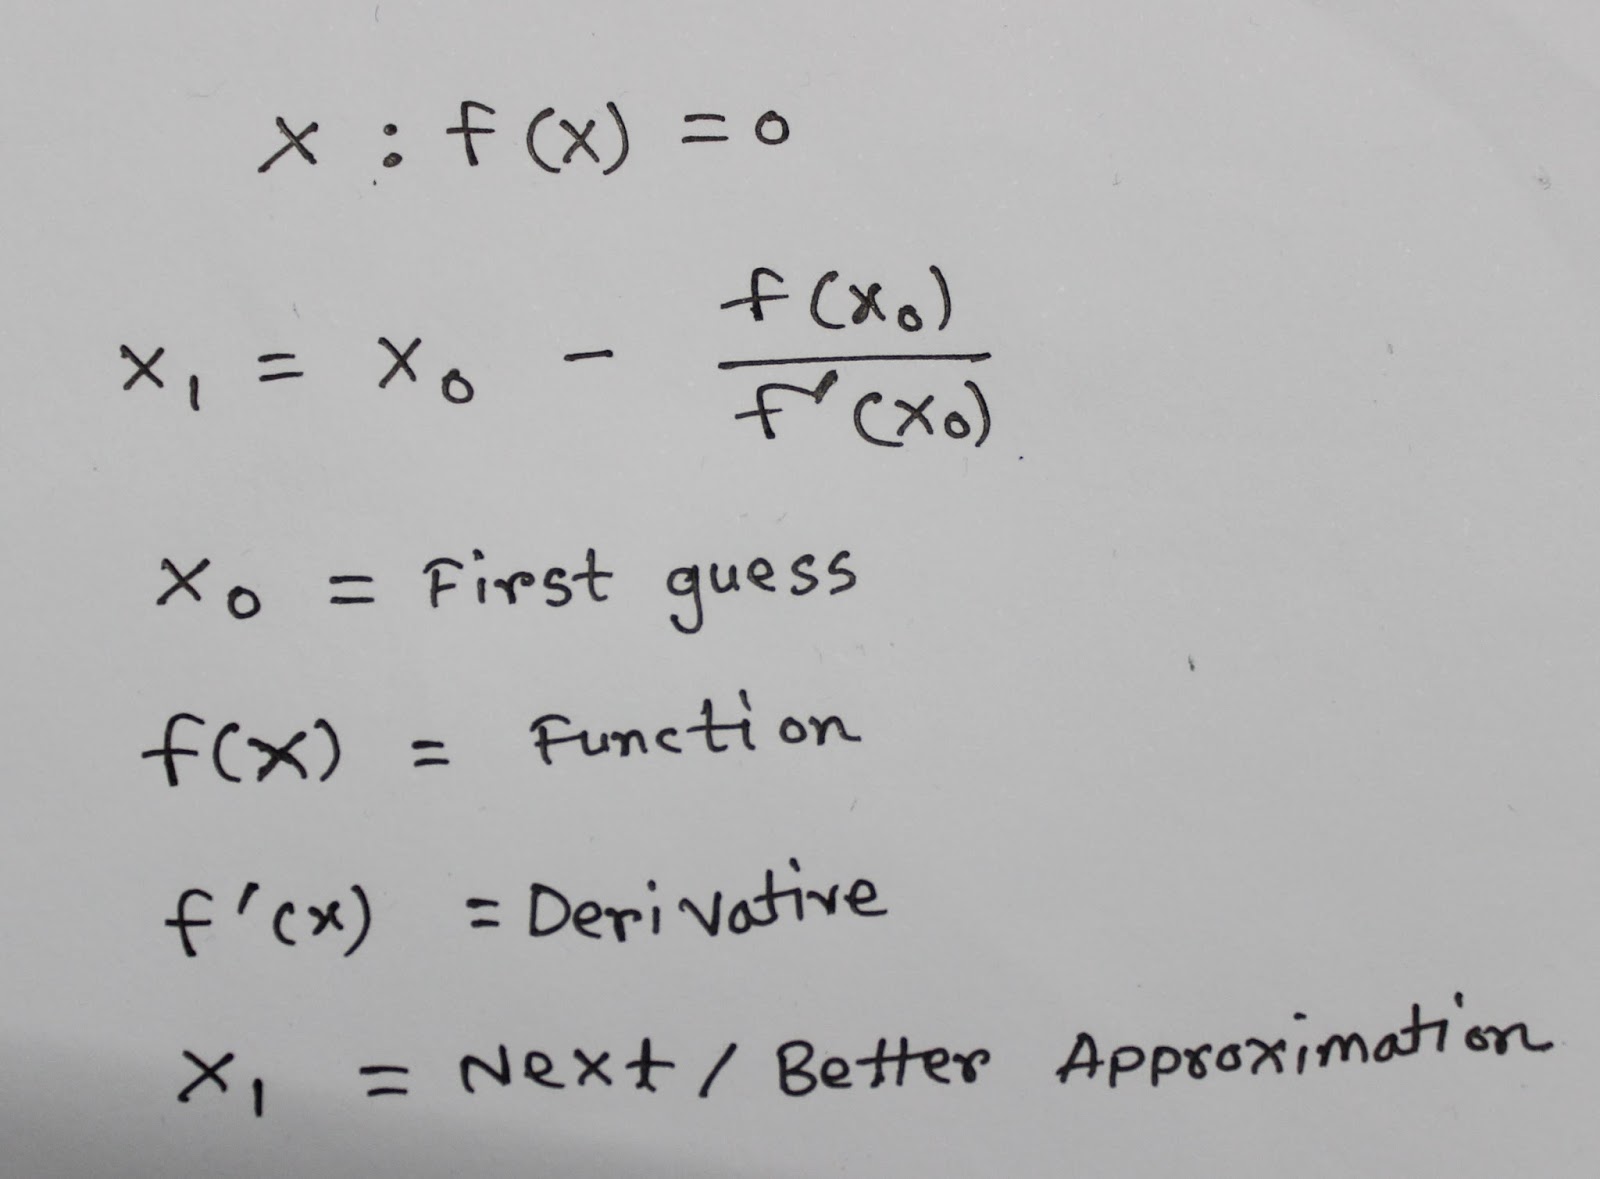 x : f(x) = 0
x₁ = x₀ - f(x₀) / f'(x₀)
x₀ = First guess
f(x) = Function
f'(x) = Derivative
x₁ = Next / Better Approximation